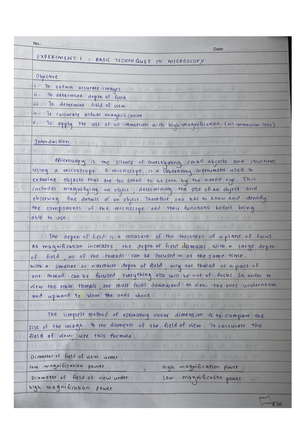 No.
Date
EXPERIMENT 1 : BASIC TECHNIQUES IN MICROSCOPY
Objective
i. To obtain accurate images
ii. To determine depth of field
iii. To determine field of view
iv. To calculate actual magnification
v. To apply the use of oil immersion with high magnification (oil immersion lens)
Introduction
Microscopy is the science of investigating small objects and structures
using a microscope. A microscope is a laboratory instrument used to
examine objects that are too small to be seen by the naked eye. This
includes magnifying an object, determining the size of an object and
observing fine details of an object. Therefore one has to know and identify
the components of the microscope and their functions before being
able to use.
The depth of field is a measure of the thickness of a plane of focus
As magnification increases the depth of field decreases. With a large depth
of field, all of the threads can be focused on at the same time.
With a smaller or narrower depth of field, only one thread or a part of
one thread can be focused everything else will be out of focus. In order to
view the other threads, you must focus downward to view the ones underneath
and upward to view the ones above.
The simplest method of estimating linear dimension is to compare the
size of the image to the diameter of the field of view. To calculate the
field of view use this formula:
Diameter of field of view under
low magnification power High magnification power
Diameter of field of view under Low magnification power
high magnification power